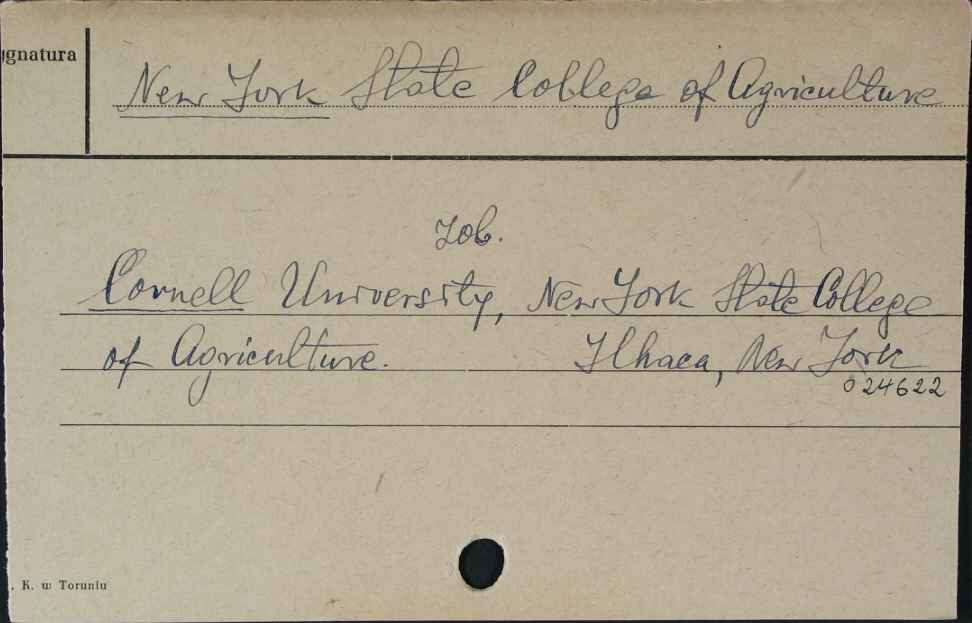 ygnatura
New York State College of Agriculture
zob.
Cornell University, New York State College
of Agriculture. Ithaca, New York
024622
. K. w Toruniu